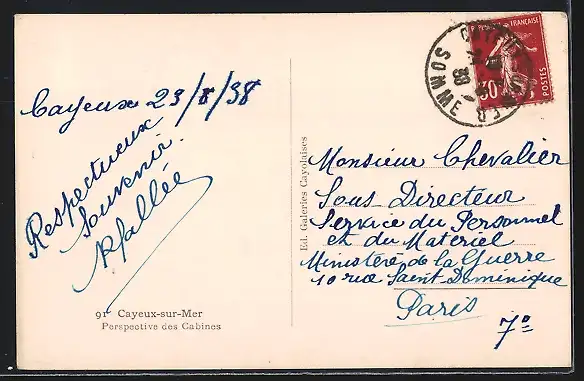 Cayeux 23/8/38
Respectueux
Souvenir.
91 Cayeux-sur-Mer
Perspective des Cabines
Ed. Galeries Cayolaises
SOMME
FRANÇAISE
POSTES
Monsieur Chevalier
Sous Directeur
Service du Personnel
et du Matériel
Ministère de la Guerre
10 rue Saint-Dominique
Paris
7º